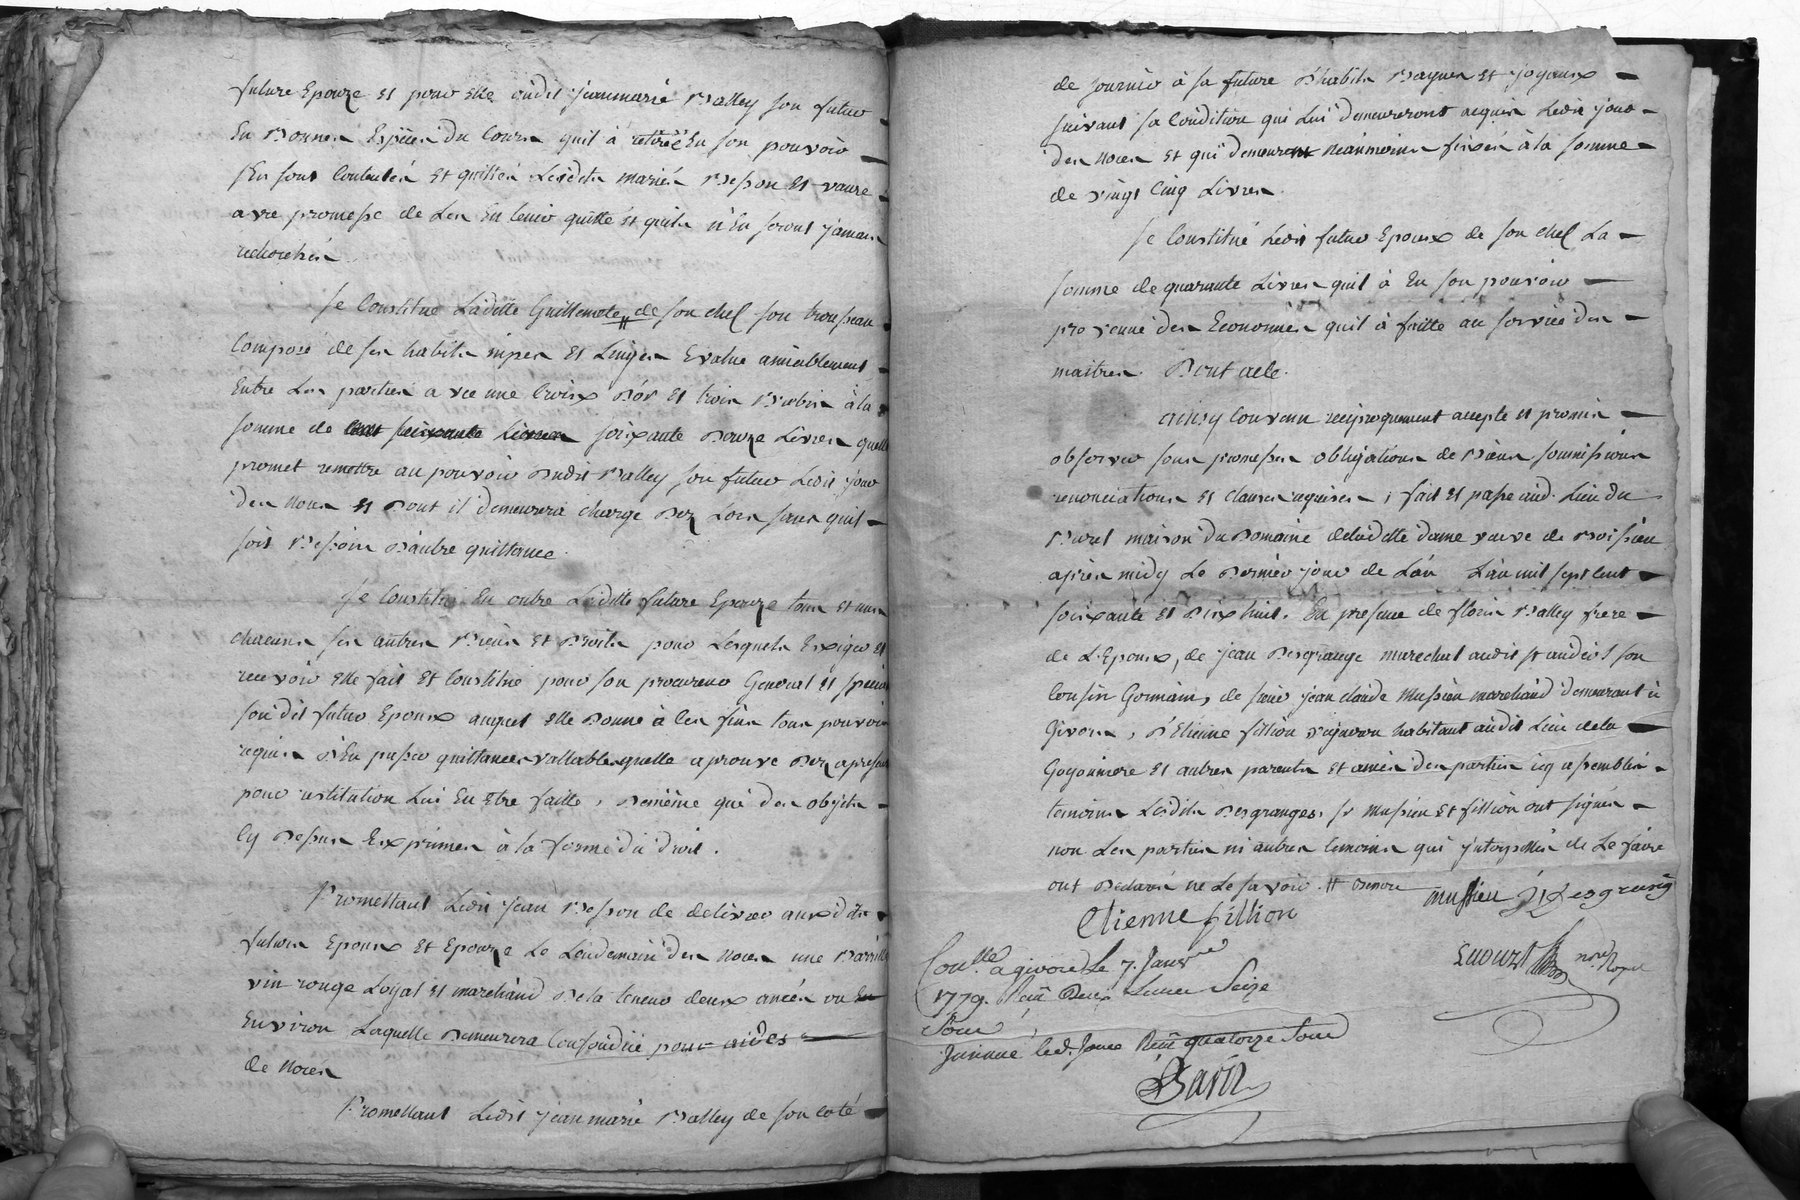 future Epouze et pour Elle audit jeanmarie Balley son futur
En Bonnes Espèces du Cours quil à retirée En son pouvoir
sEn sont Contentés et quittés Lesdits mariés Besson et vaure
avec promesse de Les En tenir quitte et quils n'En seront jamais
recherchés
se Constitue Laditte Guillemete de son chef son trousseau
Composé de ses habits nipes et Linges Evalué amiablement
Entre Les parties avec une Croix D'or et trois Brebis à la
somme de soixante Douze Livres quelle
promet remettre au pouvoir Dudit Balley son futur Ledit jour
des noces et Dont il demeurera chargé Dez Lors sans quil
soit Besoin D'autre quittance.
se Constitue En outre Laditte future Epouze tous et uns
chacuns ses autres Biens et Droits pour Lesquels Exiger et
recevoir elle fait et Constitue pour son procureur General et special
son dit futur Epoux auquel elle Donne à Ces fins tous pouvoirs
requis D'En passer quittances vallables quelle aprouve Dez apresent
pour restitution Lui En Etre faitte, De même que des objets
Cy Dessus Exprimes à la forme du droit.
Promettant Ledit jean Besson de délivrer auxdits
futurs Epoux et Epouze Le Lendemain des noces une Barrille
vin rouge Loyal et marchand De la teneur deux anées ou
Environ Laquelle Demeurera Confondüe pour aides
de noces
Promettant Ledit jean marie Balley de son coté
de fournir à sa future D'habits Bagues et joyaux
suivant sa Condition qui Lui demeureront acquis Ledit jour
des noces et qui demeurent néanmoins fixés à la somme
de vingt Cinq Livres.
se Constitué Ledit futur Epoux de son chef La
somme de quarante Livres quil à En son pouvoir
provenüe des Economies quil à faitte au service des
maitres. Dont acte.
Ainsy Convenu reciproquement accepté et promis
observer sous promesses obligations de Biens soumissions
renonciations et clauses requises, fait et passé aud. Lieu du
Buret maison du Domaine de laditte dame veuve de Boissieu
après midy Le Dernier jour de L'an L'an mil sept Cent
soixante et Dix huit. En presence de floris Balley frere
de L'Epoux, de jean Desgrange marechal audit st andéol son
Cousin Germain, de sieur jean claude Mussieu marchand demeurant à
Givors, D'Etienne fillion vigneron habitant audit Lieu de la
Goyonniere et autres parents et amis des parties icy assemblés
temoins Lesdits Desgranges, sr Mussieu et fillion ont signés
non Les parties ni autres temoins qui j'nterpellés de Le faire
ont Declarés ne Le savoir.
mussieu J Desgrange
Etienne fillion
Conlle. a givors Le 7. Janvier
1779. Recu Deux Livres Seize
Sous
Jnsinué led. Jour Recu quatorze Sous